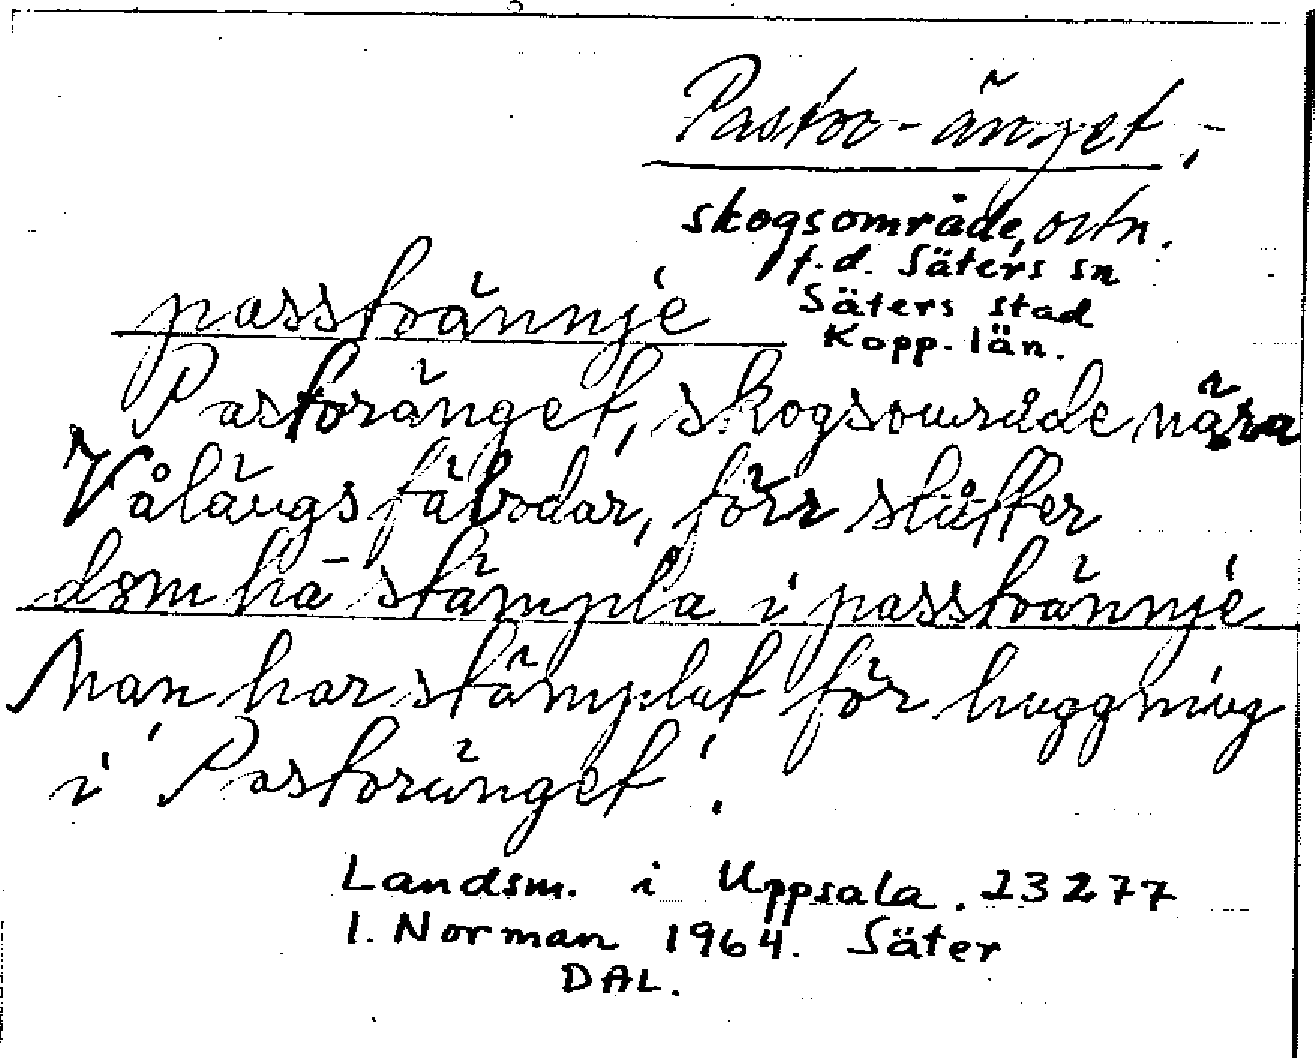 Pastor-änget,
skogsområde, ortn.
f.d. Säters sn
Säters stad
Kopp. län.
passtoännje
Pastoränget, skogsområde nära
Vålängs fäbodar, förr slåtter
dom ha stämpla i passtoännje
Man har stämplat för huggning
i Pastoränget!
Landsm. i Uppsala. 23277
I. Norman 1964. Säter
DAL.